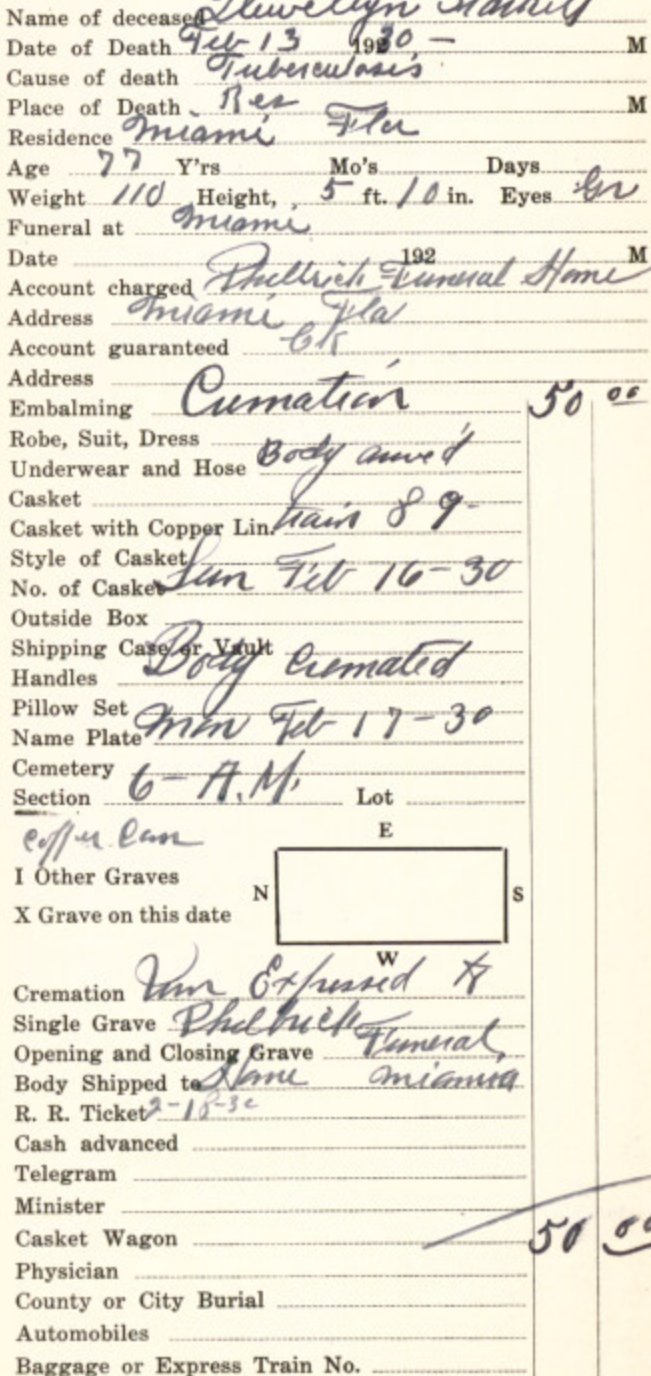 Name of deceased Llewellyn
Date of Death Feb 13 1930 - M
Cause of death Tuberculosis
Place of Death Res M
Residence Miami Fla
Age 77 Y'rs Mo's Days
Weight 110 Height, 5 ft. 10 in. Eyes Gr
Funeral at Miami
Date 192 M
Account charged Philbrick Funeral Home
Address Miami Fla
Account guaranteed Ck
Address
Embalming Cremation 50 00
Robe, Suit, Dress
Underwear and Hose Body arrived
Casket
Casket with Copper Lin. train 89-
Style of Casket
No. of Casket Sun Feb 16-30
Outside Box
Shipping Case or Vault
Handles Body Cremated
Pillow Set
Name Plate Mon Feb 17-30
Cemetery
Section 6-A.M. Lot
Copper Can
E
I Other Graves
N S
X Grave on this date
W
Cremation Urn Expressed to
Single Grave Philbrick
Opening and Closing Grave Funeral
Body Shipped to Home Miami
R. R. Ticket 2-18-30
Cash advanced
Telegram
Minister
Casket Wagon 50 00
Physician
County or City Burial
Automobiles
Baggage or Express Train No.